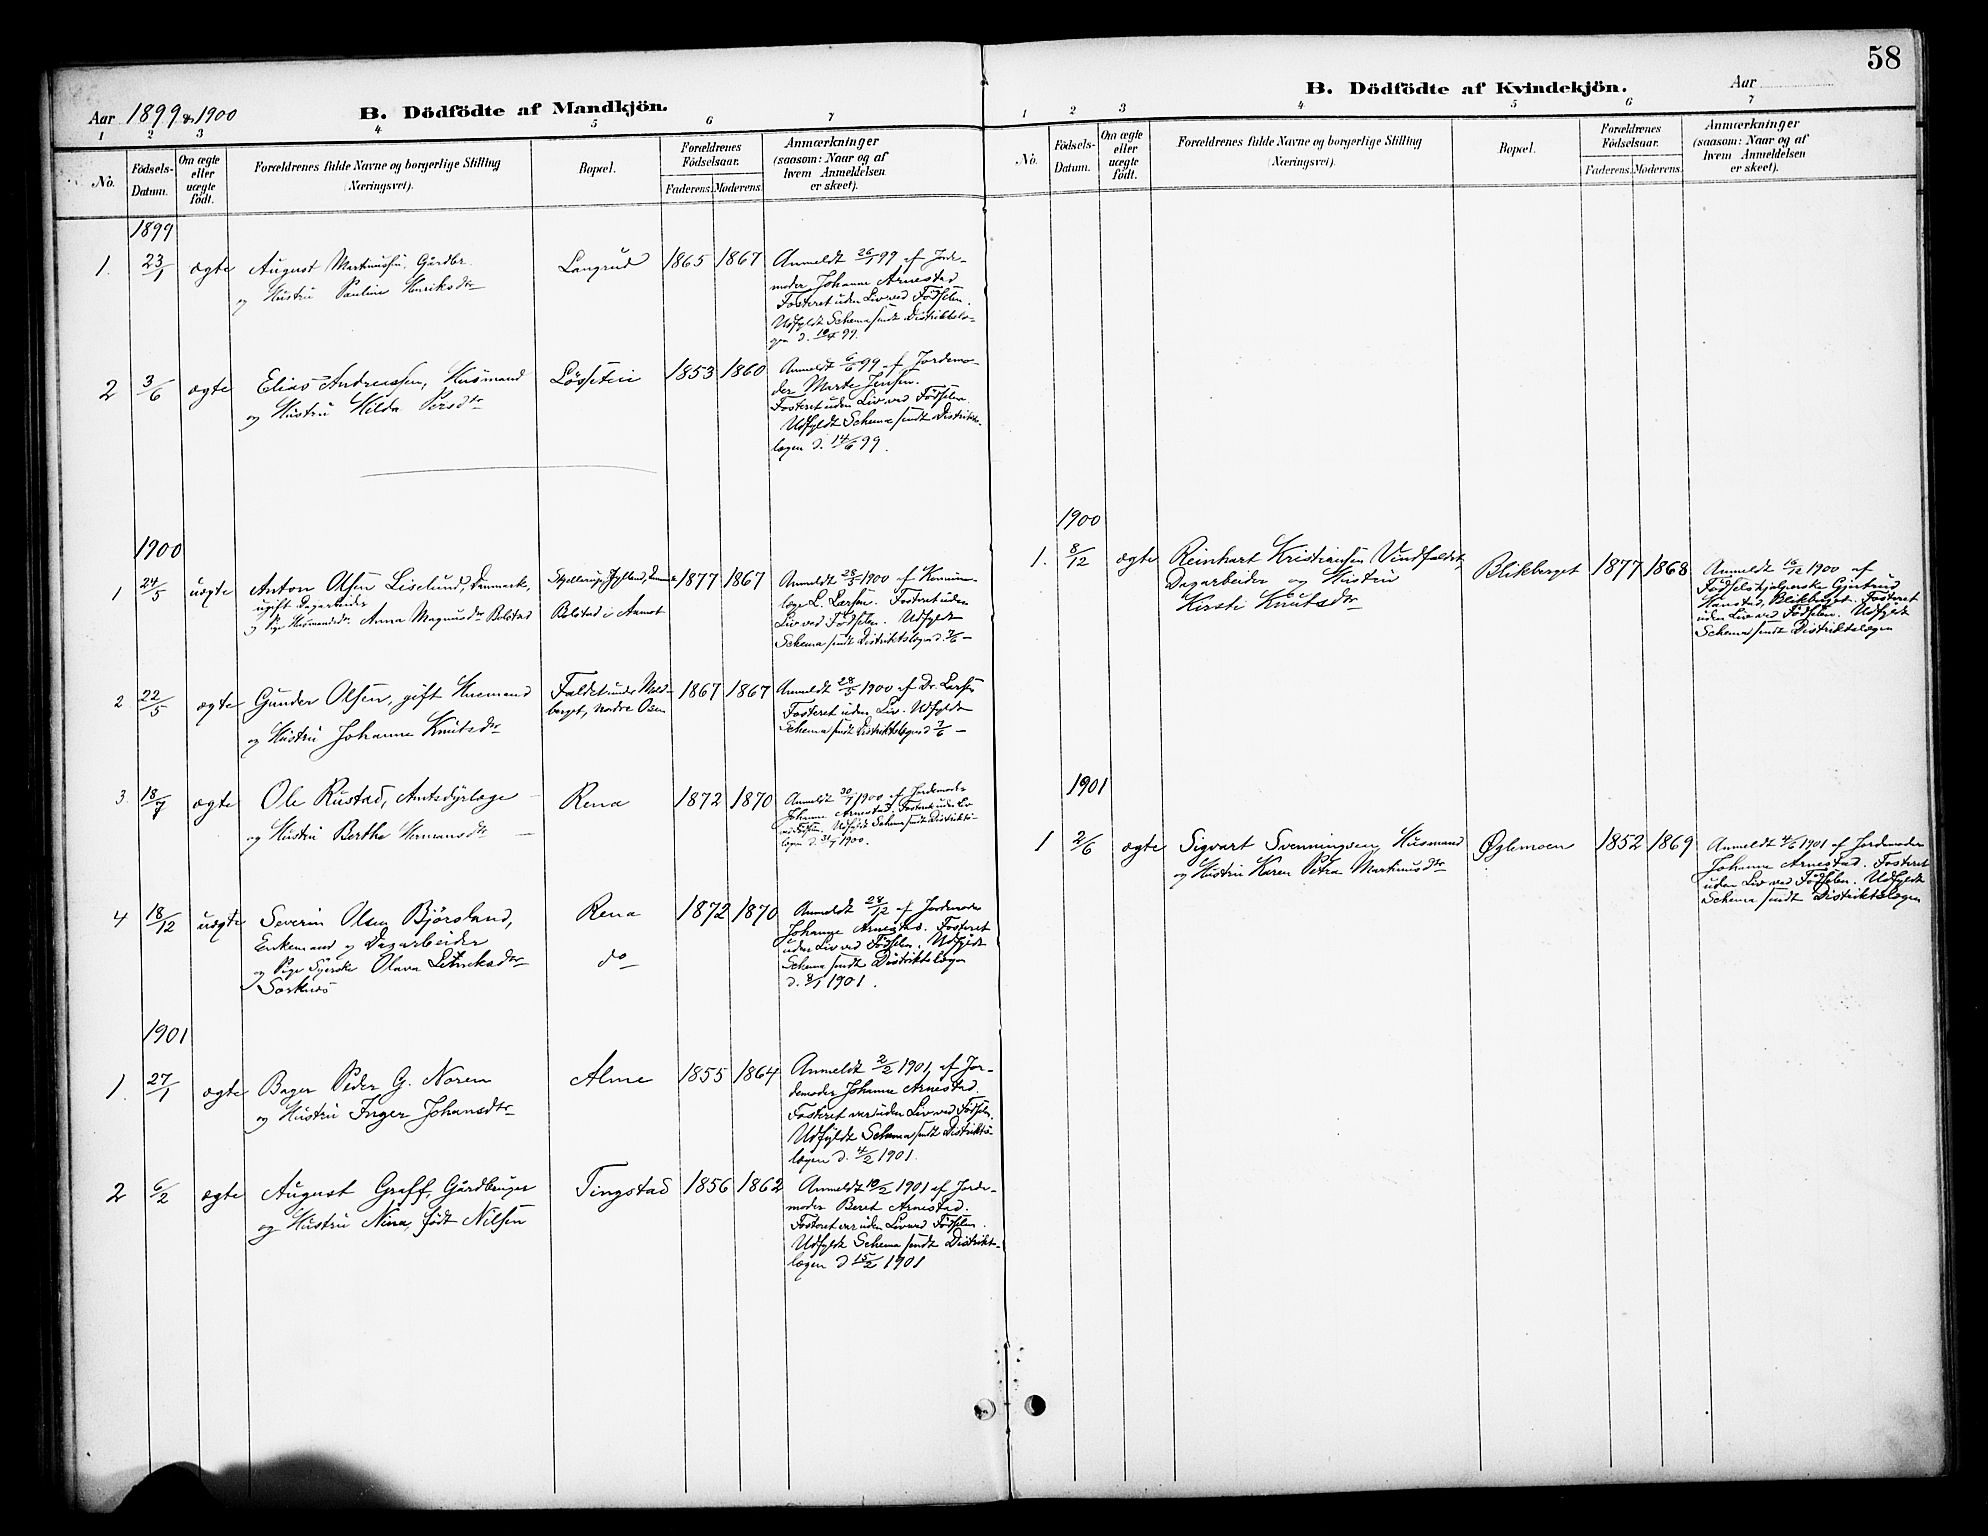 58
Aar 1899 & 1900
B. Dödfödte af Mandkjön.
1 2 3 4 5 6 7
No.
Födsels-
Datum.
Om ægte
eller
uægte
födt.
Forældrenes fulde Navne og borgerlige Stilling
(Næringsvei).
Bopæl.
Forældrenes
Födselsaar.
Faderens. Moderens.
Anmærkninger
(saasom: Naar og af
hvem Anmeldelsen
er skeet).
1899
1. 23/1 ægte August Martinussn. Gårdbr.
og Hustru Pauline Henriksdtr
Langrud 1865 1867
Anmeldt 26/1 99 af Jorde-
moder Johanne Arnestad
Fosteret uden Liv ved Fødselen.
Udfyldt Schema sendt Distriktslæ-
gen d. 99.
2 3/6 ægte Elias Andreassen, Husmand
og Hustru Hilda Persdtr
Løsseteie 1853 1860
Anmeldt 6/6 99 af Jordemo-
der Marte Jensen.
Fosteret uden Liv ved Fødselen.
Udfyldt Schema sendt Distrikts-
lægen d. 14/6 99.
1900
1 24/5 uægte Anton Olsen Liselund, Danmark,
ugift Dagarbeider
og Pige Husmandsdr. Anna Magnusdtr Bolstad
Jylland,
Bolstad i Aamot
1877 1867
Anmeldt 28/5 1900 af Kommu-
læge L. Larsen. Fosteret uden
Liv ved Fødselen. Udfyldt
Schema sendt Distriktslægen d. 7/6 —
2 22/5 ægte Gunder Olsen, gift Husmand
og Hustru Johanne Knutsdtr
Faldet under Mold-
berget, Nordre Osen
1867 1867
Anmeldt 28/5 1900 af Dr. Larsen
Fosteret uden Liv. Udfyldt
Schema sendt Distriktslægen d 7/6 —
3. 18/7 ægte Ole Rustad, Amtsdyrlæge
og Hustru Berthe Hermansdtr
Rena 1872 1870
Anmeldt 30/7 1900 af Jordemoder
Johanne Arnestad. Fosteret uden Liv
ved Fødselen. Udfyldt Schema sendt Distrikts-
lægen d. 31/7 1900.
4 18/12 uægte Severin Olsen Bjørsland,
Enkemand og Dagarbeider
og Pige Syerske Olava
Sorknes
Rena
do
1872 1870
Anmeldt 28/12 af Jordemoder
Johanne Arnestad. Fosteret
uden Liv ved Fødselen. Udfyldt
Schema sendt Distriktslægen
d. 2/1 1901.
1901
1 27/1 ægte Bager Peder G. Noren
og Hustru Inger Johansdtr
Alme 1855 1864
Anmeldt 2/2 1901 af Jor-
demoder Johanne Arnestad.
Fosteret var uden Liv ved Fødslen.
Udfyldt Schema sendt Distrikts-
lægen d. 4/2 1901.
2 6/2 ægte August Graff, Gårdbruger
og Hustru Nina, født Nilsen
Tingstad 1856 1862
Anmeldt 10/2 1901 af Jorde-
moder Beret Arnestad.
Fosteret var uden Liv ved Fødslen.
Udfyldt Schema sendt Distrikts-
lægen d 15/2 1901
B. Dödfödte af Kvindekjön.
Aar
1 2 3 4 5 6 7
No.
Födsels-
Datum.
Om ægte
eller
uægte
födt.
Forældrenes fulde Navne og borgerlige Stilling
(Næringsvei).
Bopæl.
Forældrenes
Födselsaar.
Faderens. Moderens.
Anmærkninger
(saasom: Naar og af
hvem Anmeldelsen
er skeet).
1900
1. 8/12 ægte Reinhart Kristiansen Vindfaldet,
Dagarbeider og Hustru
Kirsti Knutsdtr
Blikberget 1877 1868
Anmeldt 16/12 1900 af
Fødselshjelperske Gjertrud
Hanstad, Blikberget. Fosteret
uden Liv ved Fødselen. Udfyldt
Schema sendt Distriktslægen
1901
1 2/6 ægte Sigvart Svenningsen, Husmand
og Hustru Karen Petra Martinusdtr
Øglemoen 1852 1869
Anmeldt 4/6 1901 af Jordemoder
Johanne Arnestad. Fosteret
uden Liv ved Fødselen. Udfyldt
Schema sendt Distriktslægen